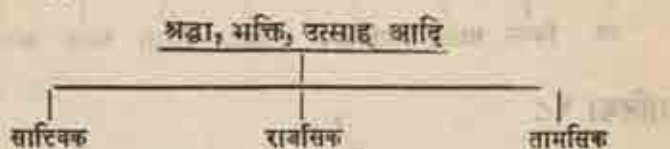 श्रद्धा, भक्ति, उत्साह आदि
सात्विक राजसिक तामसिक